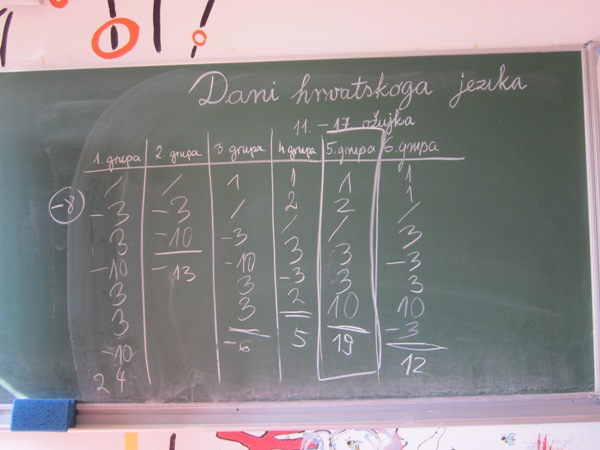 Dani hrvatskoga jezika
11. - 17 ožujka
1. grupa 2. grupa 3. grupa 4. grupa 5. grupa 6. grupa
/ / 1 1 1 1
-8 -3 -3 / 2 2 1
3 -10 -3 / / /
-10 -13 -10 3 3 3
3 3 -3 3 -3
3 3 2 10 3
-10 -6 5 19 10
2 4 -3
12